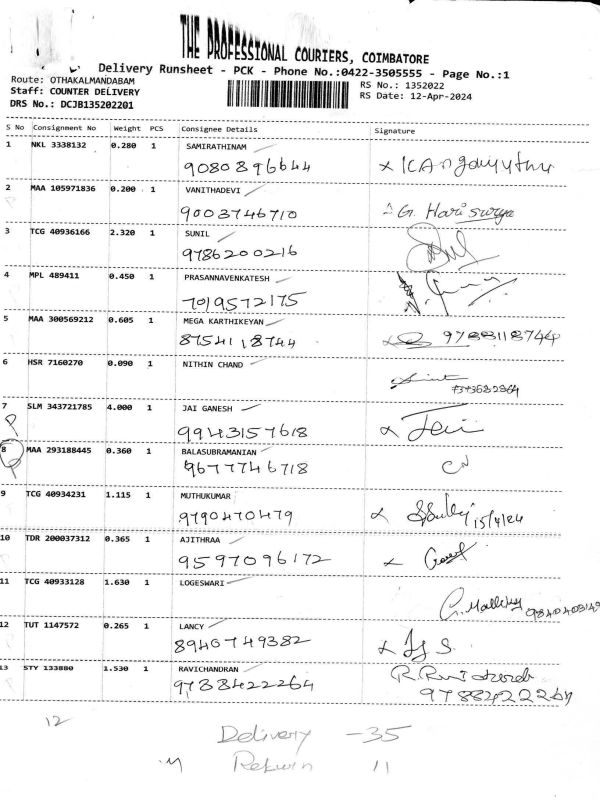 THE PROFESSIONAL COURIERS, COIMBATORE
Delivery Runsheet - PCK - Phone No.:0422-3505555 - Page No.:1
Route: OTHAKALMANDABAM
RS No.: 1352022
Staff: COUNTER DELIVERY
RS Date: 12-Apr-2024
DRS No.: DCJB135202201
S No Consignment No Weight PCS Consignee Details Signature
1 NKL 3338132 0.280 1 SAMIRATHINAM
9080896644
2 MAA 105971836 0.200 1 VANITHADEVI
9003746710 G. Harisurya
3 TCG 40936166 2.320 1 SUNIL
9786200216
4 MPL 489411 0.450 1 PRASANNAVENKATESH
7019572175
5 MAA 300569212 0.605 1 MEGA KARTHIKEYAN
8754118744 9788118744
6 HSR 7160270 0.090 1 NITHIN CHAND
7 SLM 343721785 4.000 1 JAI GANESH
9943157618
8 MAA 293188445 0.360 1 BALASUBRAMANIAN
9677746718
9 TCG 40934231 1.115 1 MUTHUKUMAR
9790470479 15/4/24
10 TDR 200037312 0.365 1 AJITHRAA
9597096172
11 TCG 40933128 1.630 1 LOGESWARI
12 TUT 1147572 0.265 1 LANCY
8940749382
13 STY 133880 1.530 1 RAVICHANDRAN
9788422264 9788422264
12
Delivery -35
Return 11